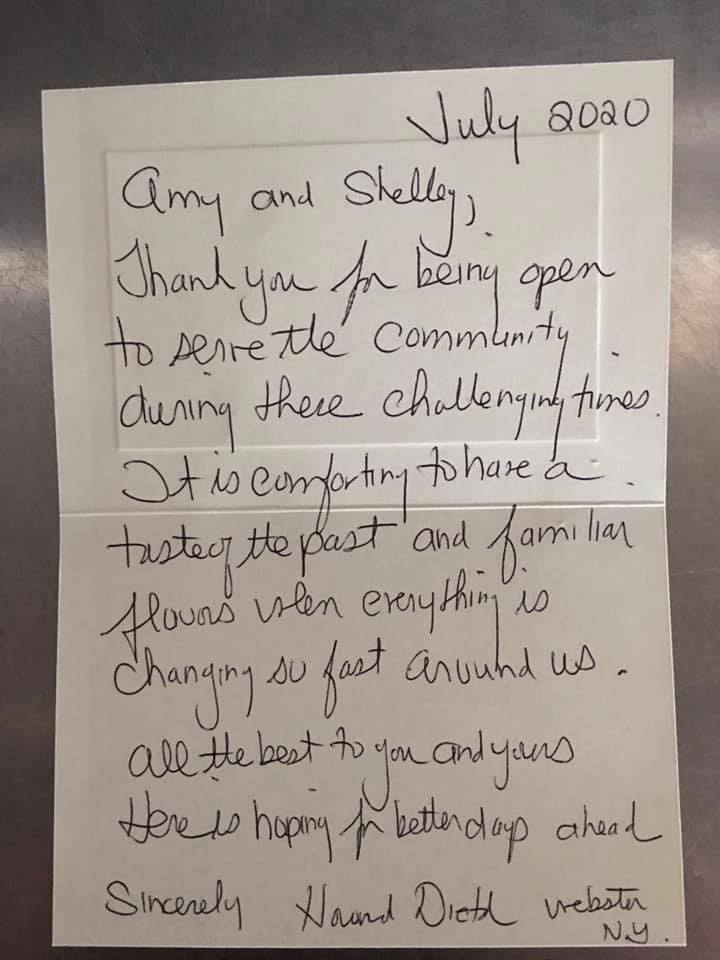 July 2020
Amy and Shelley,
Thank you for being open
to serve the community
during these challenging times.
It is comforting to have a
taste of the past and familiar
flavors when everything is
changing so fast around us.
All the best to you and yours
Here is hoping for better days ahead
Sincerely Webster
N.Y.